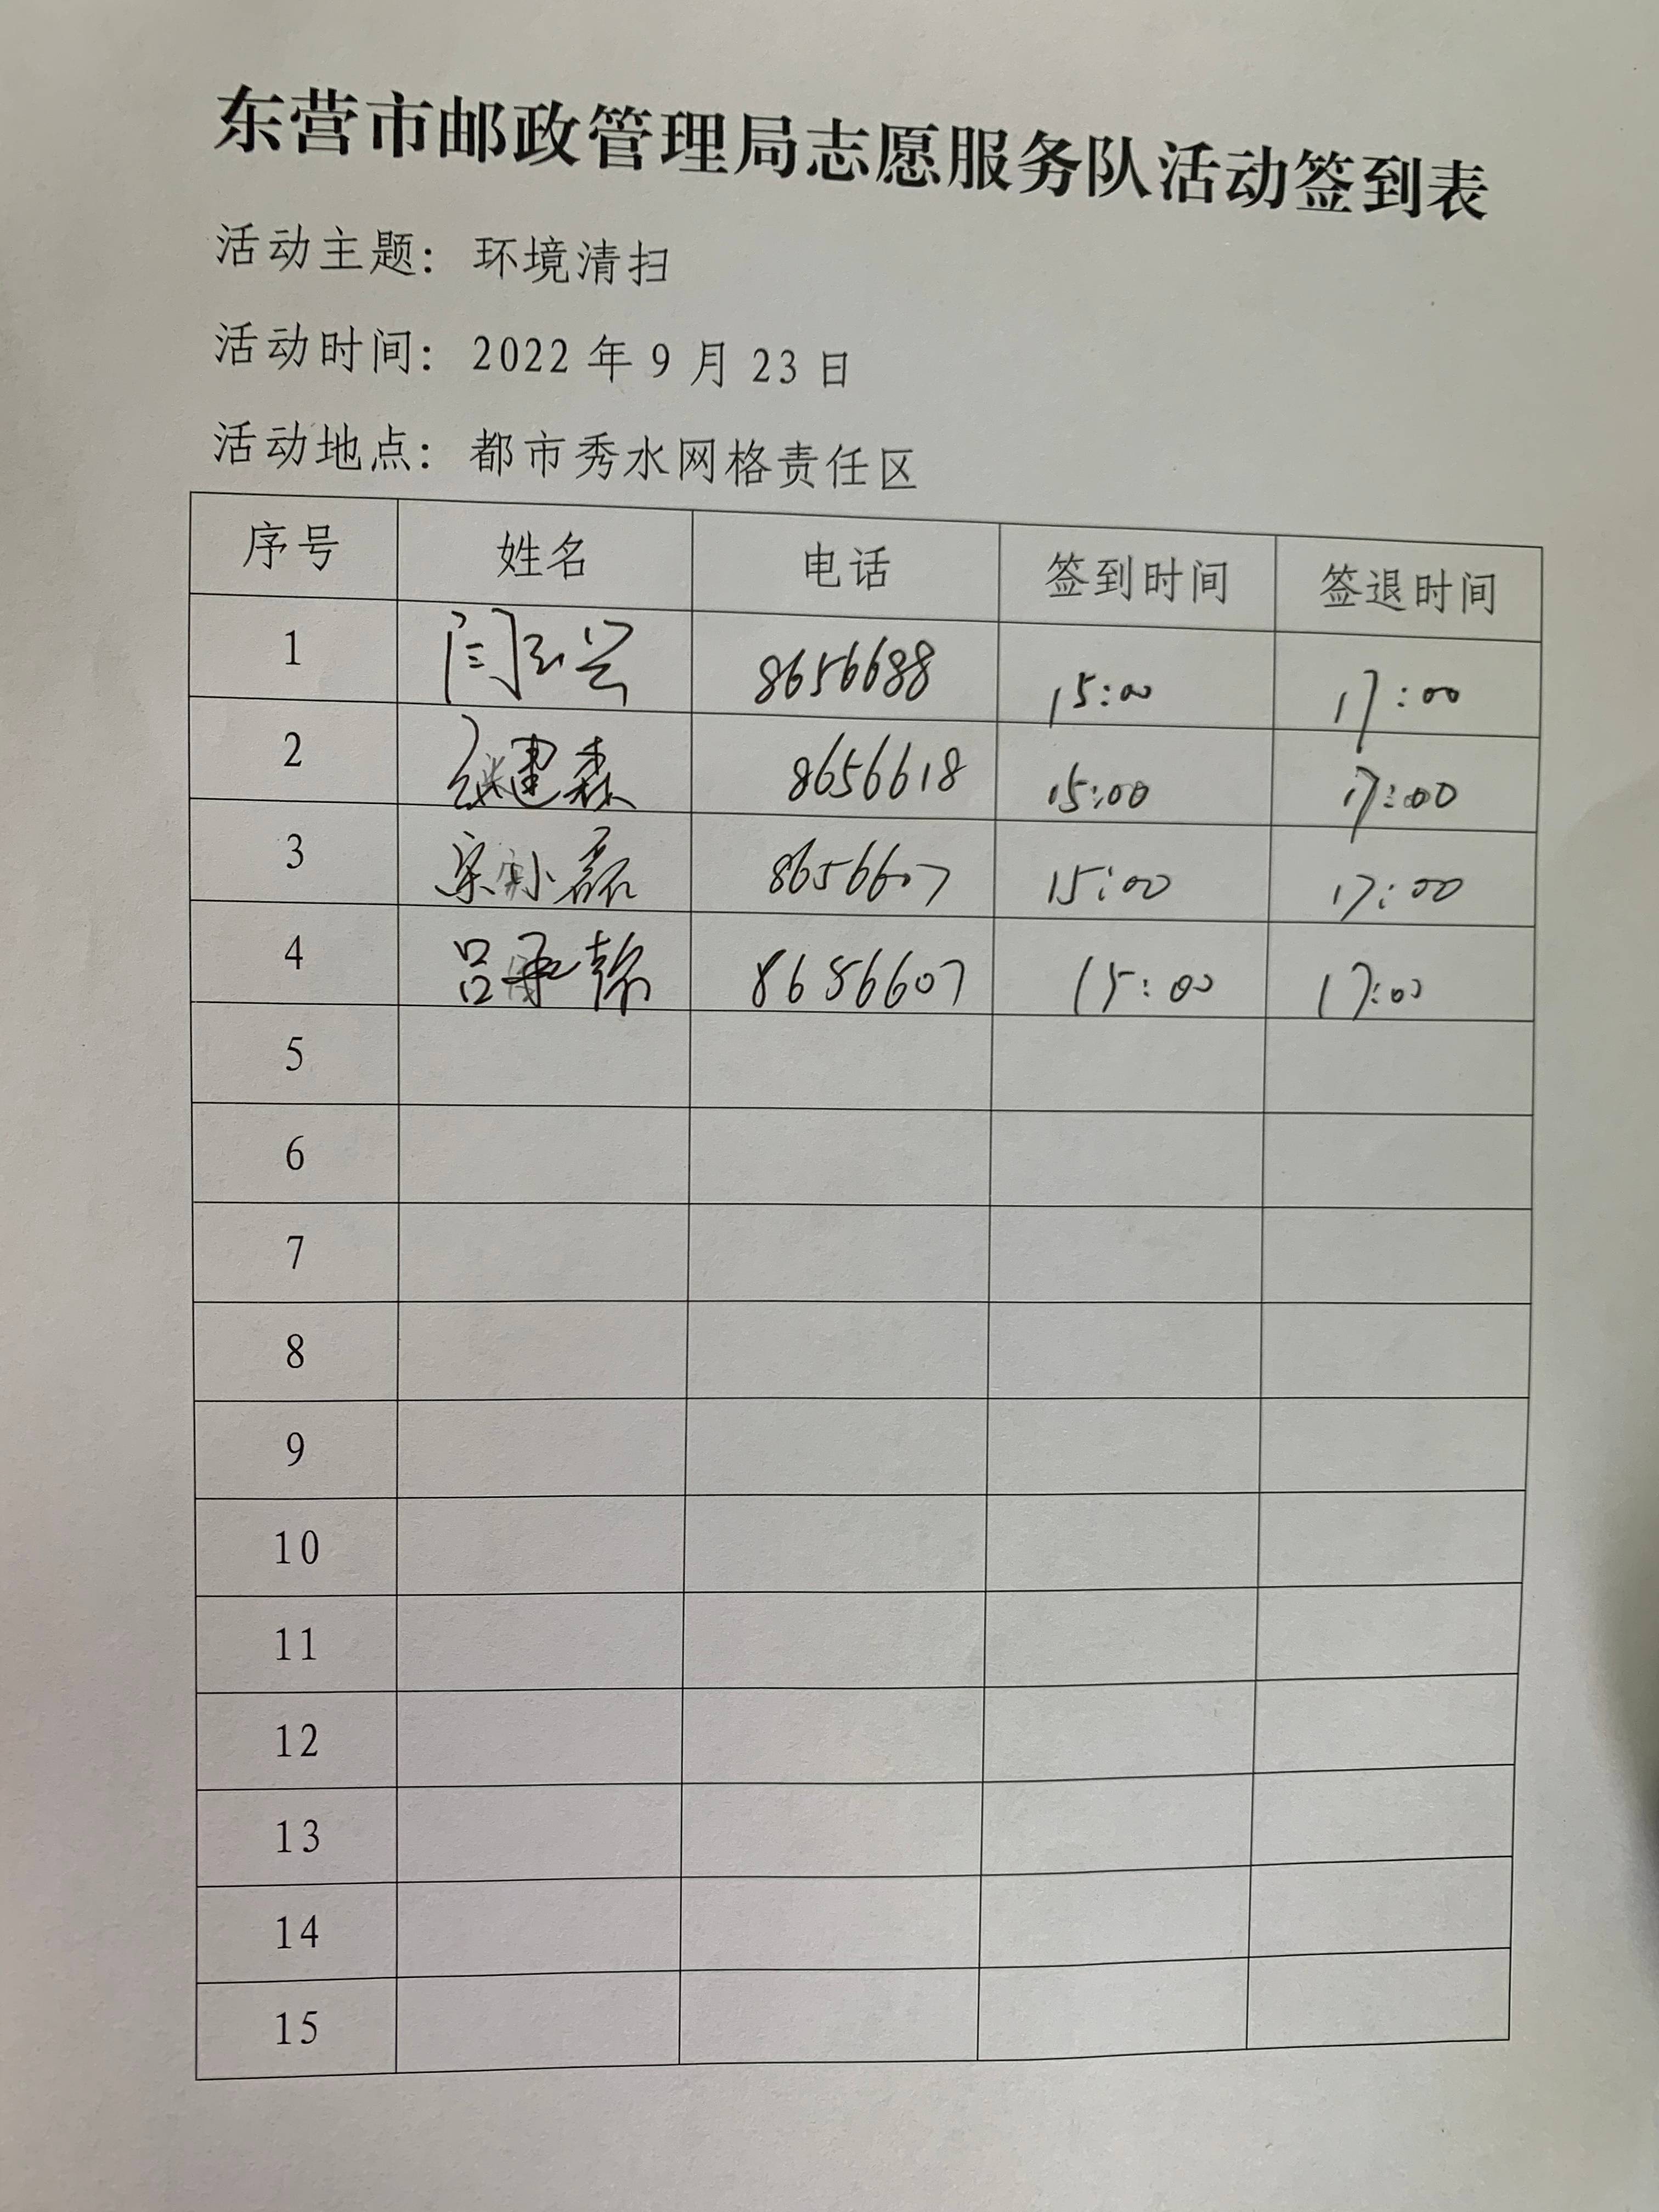 东营市邮政管理局志愿服务队活动签到表
活动主题：环境清扫
活动时间：2022 年 9 月 23 日
活动地点：都市秀水网格责任区
序号 姓名 电话 签到时间 签退时间
1 闫 8656688 15:00 17:00
2 建森 8656618 15:00 17:00
3 宋小磊 8656607 15:00 17:00
4 吕承翰 8656607 15:00 17:00
5
6
7
8
9
10
11
12
13
14
15